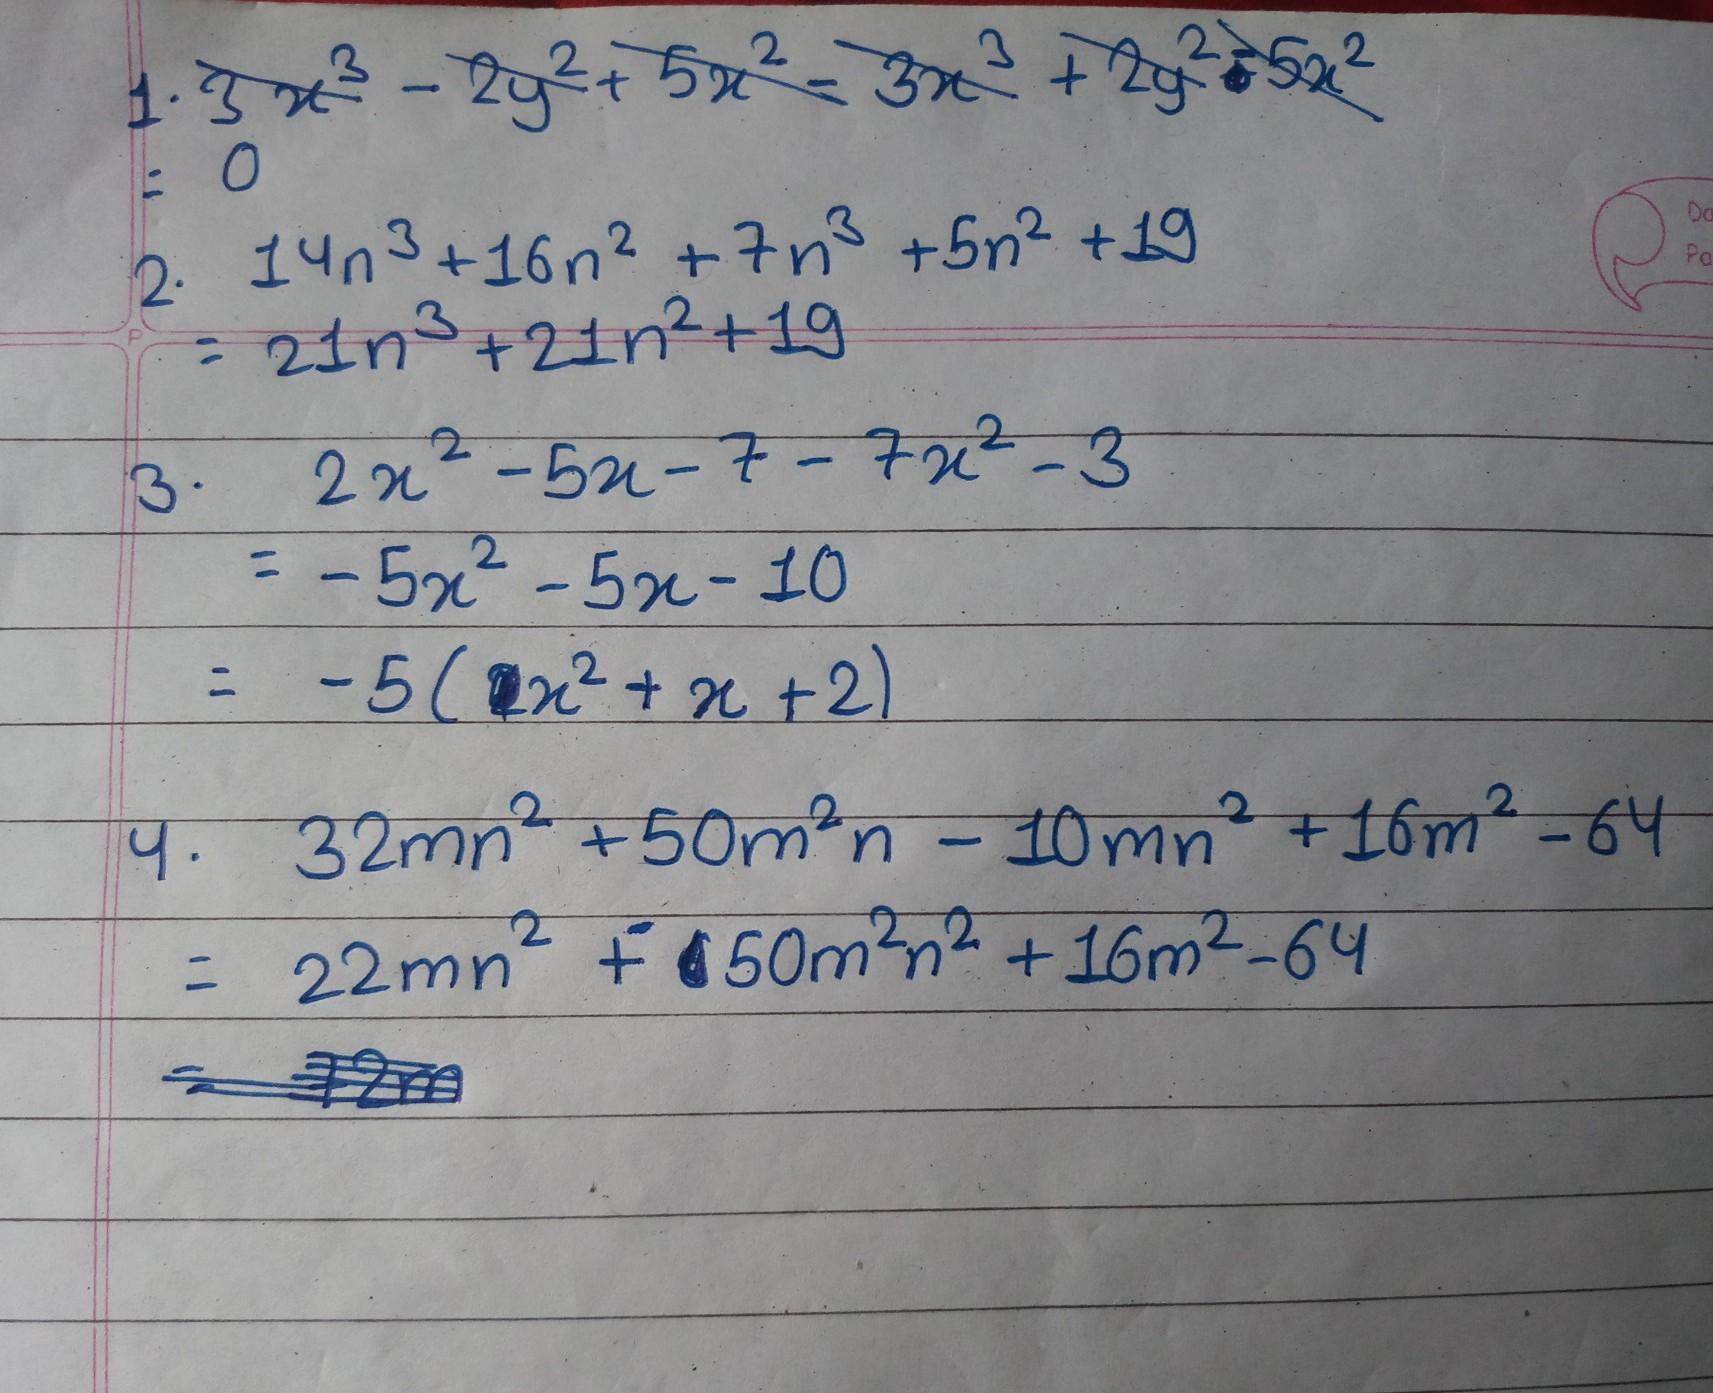 1. 3x³ - 2y² + 5x² - 3x³ + 2y² - 5x²
= 0
2. 14n³ + 16n² + 7n³ + 5n² + 19
= 21n³ + 21n² + 19
3. 2x² - 5x - 7 - 7x² - 3
= -5x² - 5x - 10
= -5(x² + x + 2)
4. 32mn² + 50m²n - 10mn² + 16m² - 64
= 22mn² + 50m²n² + 16m² - 64